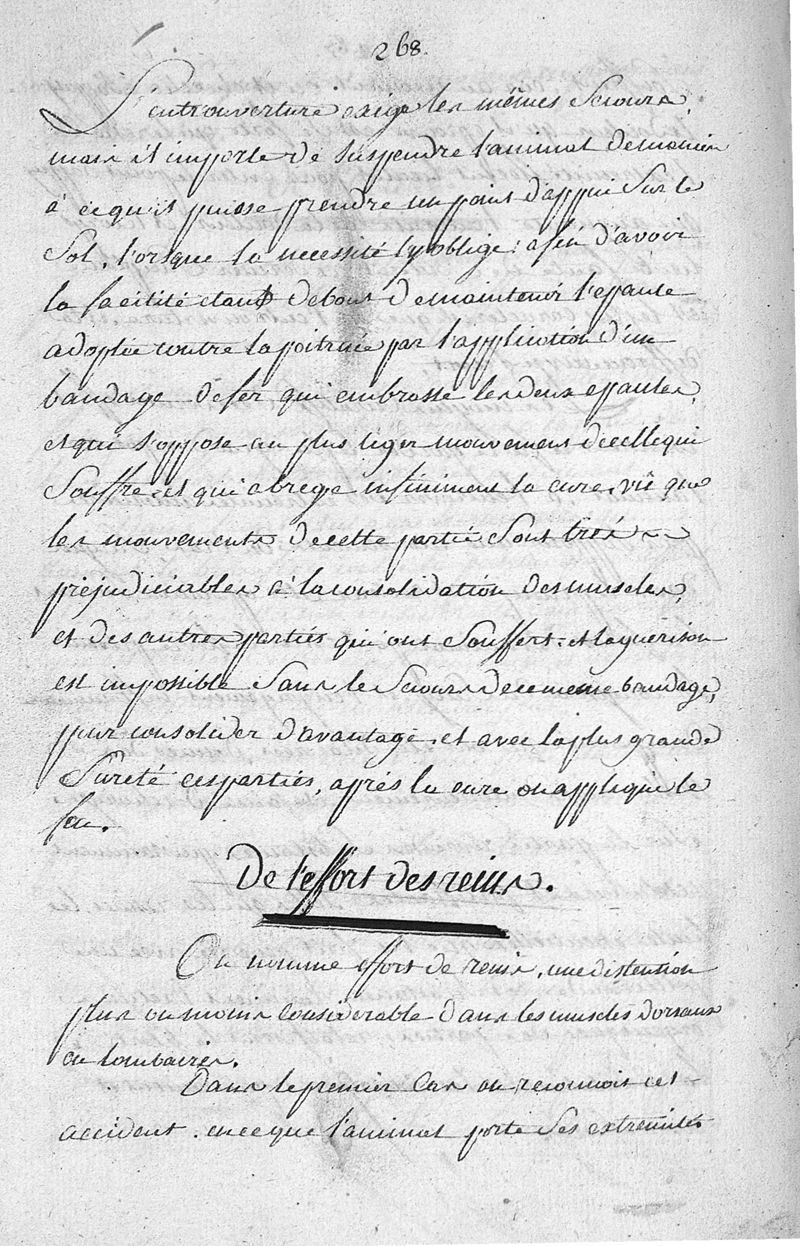 268.
L'entrouverture exige les mêmes secours
mais il importe de suspendre l'animal de manier
à ce qu'il puisse prendre un point d'appui sur le
sol, lorsque la necessité l'y oblige; afin d'avoir
la facilité etant debout de maintenir l'epaule
adoptée contre la poitrine par l'application d'un
bandage de fer qui embrasse les deux epaules,
et qui s'oppose au plus léger mouvement de celle qui
souffre et qui abrege infiniment la cure, vû que
les mouvements de cette partie sont très
préjudiciables à la consolidation des muscles,
et des autres parties qui ont souffert et la guerison
est impossible sans le secours de ce meme bandage,
pour consolider d'avantage, et avec la plus grande
sureté ces parties, après la cure on applique le
feu.
De l'effort des reins.
On nomme effort de reins, une distention
plus ou moins considerable dans les muscles dorsaux
ou lombaires.
Dans le premier cas on reconnois cet
accident en ce que l'animal porte ses extremités